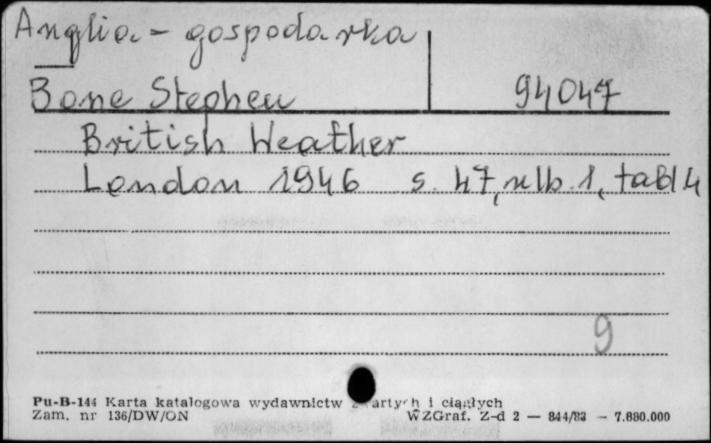 Anglia - gospodarka
Bone Stephen 94047
British Weather
London 1946 s. 47, nlb. 1, tabl 4
9
Pu-B-144 Karta katalogowa wydawnictw i ciągłych
Zam. nr 136/DW/ON WZGraf. Z-d 2 — 844/83 — 7.880.000